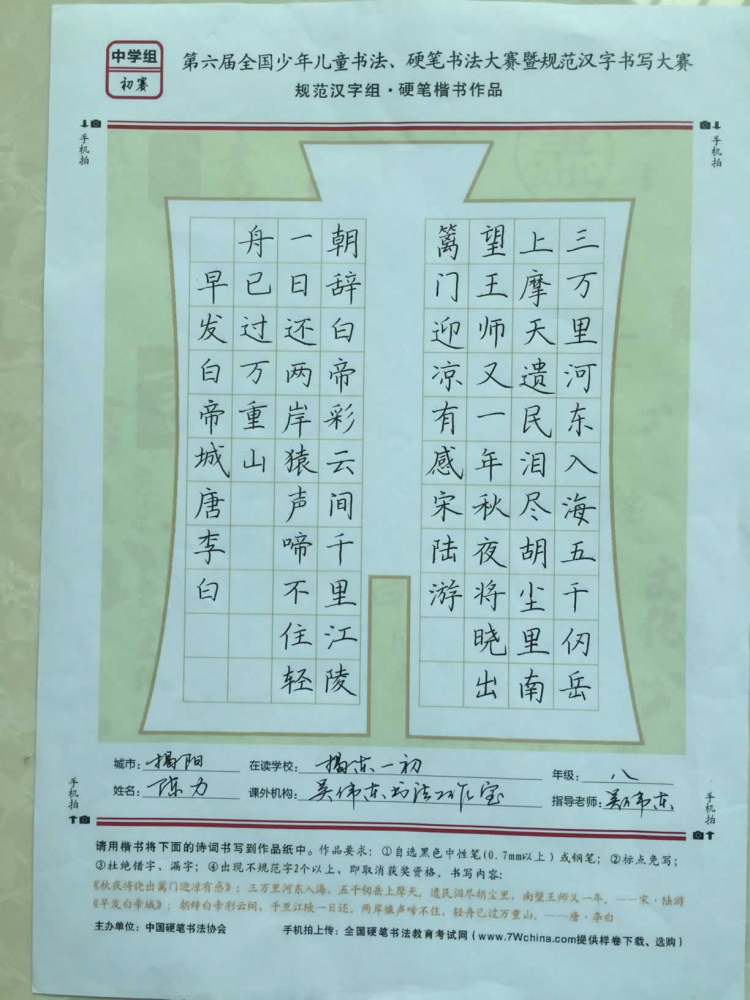 中学组
初赛
第六届全国少年儿童书法、硬笔书法大赛暨规范汉字书写大赛
规范汉字组·硬笔楷书作品
手机拍
手机拍
三万里河东入海五千仞岳
上摩天遗民泪尽胡尘里南
望王师又一年秋夜将晓出
篱门迎凉有感宋陆游
朝辞白帝彩云间千里江陵
一日还两岸猿声啼不住轻
舟已过万重山
早发白帝城唐李白
城市：揭阳
在读学校：揭东一初
年级：八
姓名：陈力
课外机构：吴伟东书法工作室
指导老师：吴伟东
手机拍
手机拍
请用楷书将下面的诗词书写到作品纸中。作品要求：①自选黑色中性笔(0.7mm以上)或钢笔；②标点免写；
③杜绝错字、漏字；④出现不规范字2个以上，即取消获奖资格。书写内容：
《秋夜将晓出篱门迎凉有感》：三万里河东入海，五千仞岳上摩天。遗民泪尽胡尘里，南望王师又一年。——宋·陆游
《早发白帝城》：朝辞白帝彩云间，千里江陵一日还。两岸猿声啼不住，轻舟已过万重山。——唐·李白
主办单位：中国硬笔书法协会
手机拍上传：全国硬笔书法教育考试网（www.7Wchina.com提供样卷下载、选购）